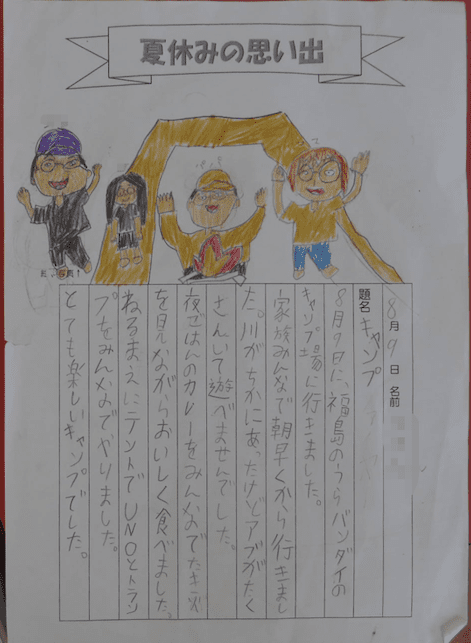 夏休みの思い出
8月9日 名前
題名 キャンプ
8月9日に、福島のうらバンダイの
キャンプ場に行きました。
家族みんなで朝早くから行きまし
た。川がちかにあったけどアブがたく
さんいて遊べませんでした。
夜ごはんのカレーをみんなでたき火
を見ながらおいしく食べました。
ねるまえにテントでUNOとトラン
プをみんなでやりました。
とても楽しいキャンプでした。